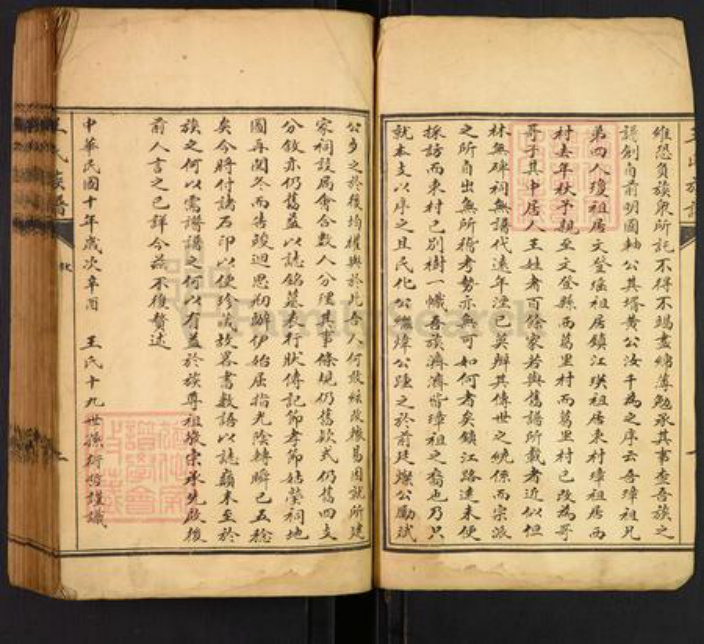 維恐負族衆所託不得不竭盡綿薄勉承其事查吾族之
譜創自前明國軸公其壻黃公汝千為之序云吾璋祖兄
弟四人瓊祖居文登瑶祖居鎮江瑛祖居東村璋祖居西
村去年秋予親至文登縣西葛里村而葛里村已改為哥
哥子其中居人王姓者百餘家若與舊譜所載者近似但
林無碑祠無譜代遠年湮已莫辨其傳世之統係而宗派
之所自出無所稽考勢亦無可如何者矣鎮江路遠未便
採訪而東村已別樹一幟吾族濟濟皆璋祖之裔也乃只
就本支以序之且氏化公繼煒公踵之於前廷燦公勵斌
公步之於後均權輿於此吾人何敢絃改轍易因就所建
家祠設局會合數人分理其事條規仍舊欵式仍舊四支
分敘亦仍舊益以誌銘墓表行狀傳記節孝節姑葵祠地
圖再閱冬而告竣迴思初辦伊始屈指光陰轉瞬已五稔
矣今將付諸石印以便珍藏故畧書數語以誌顛末至於
族之何以需譜譜之何以有益於族尊祖敬宗承先啟後
前人言之已詳今茲不復贅述
中華民國十年歲次辛酉 王氏十九世孫衍 謹識
王氏族譜